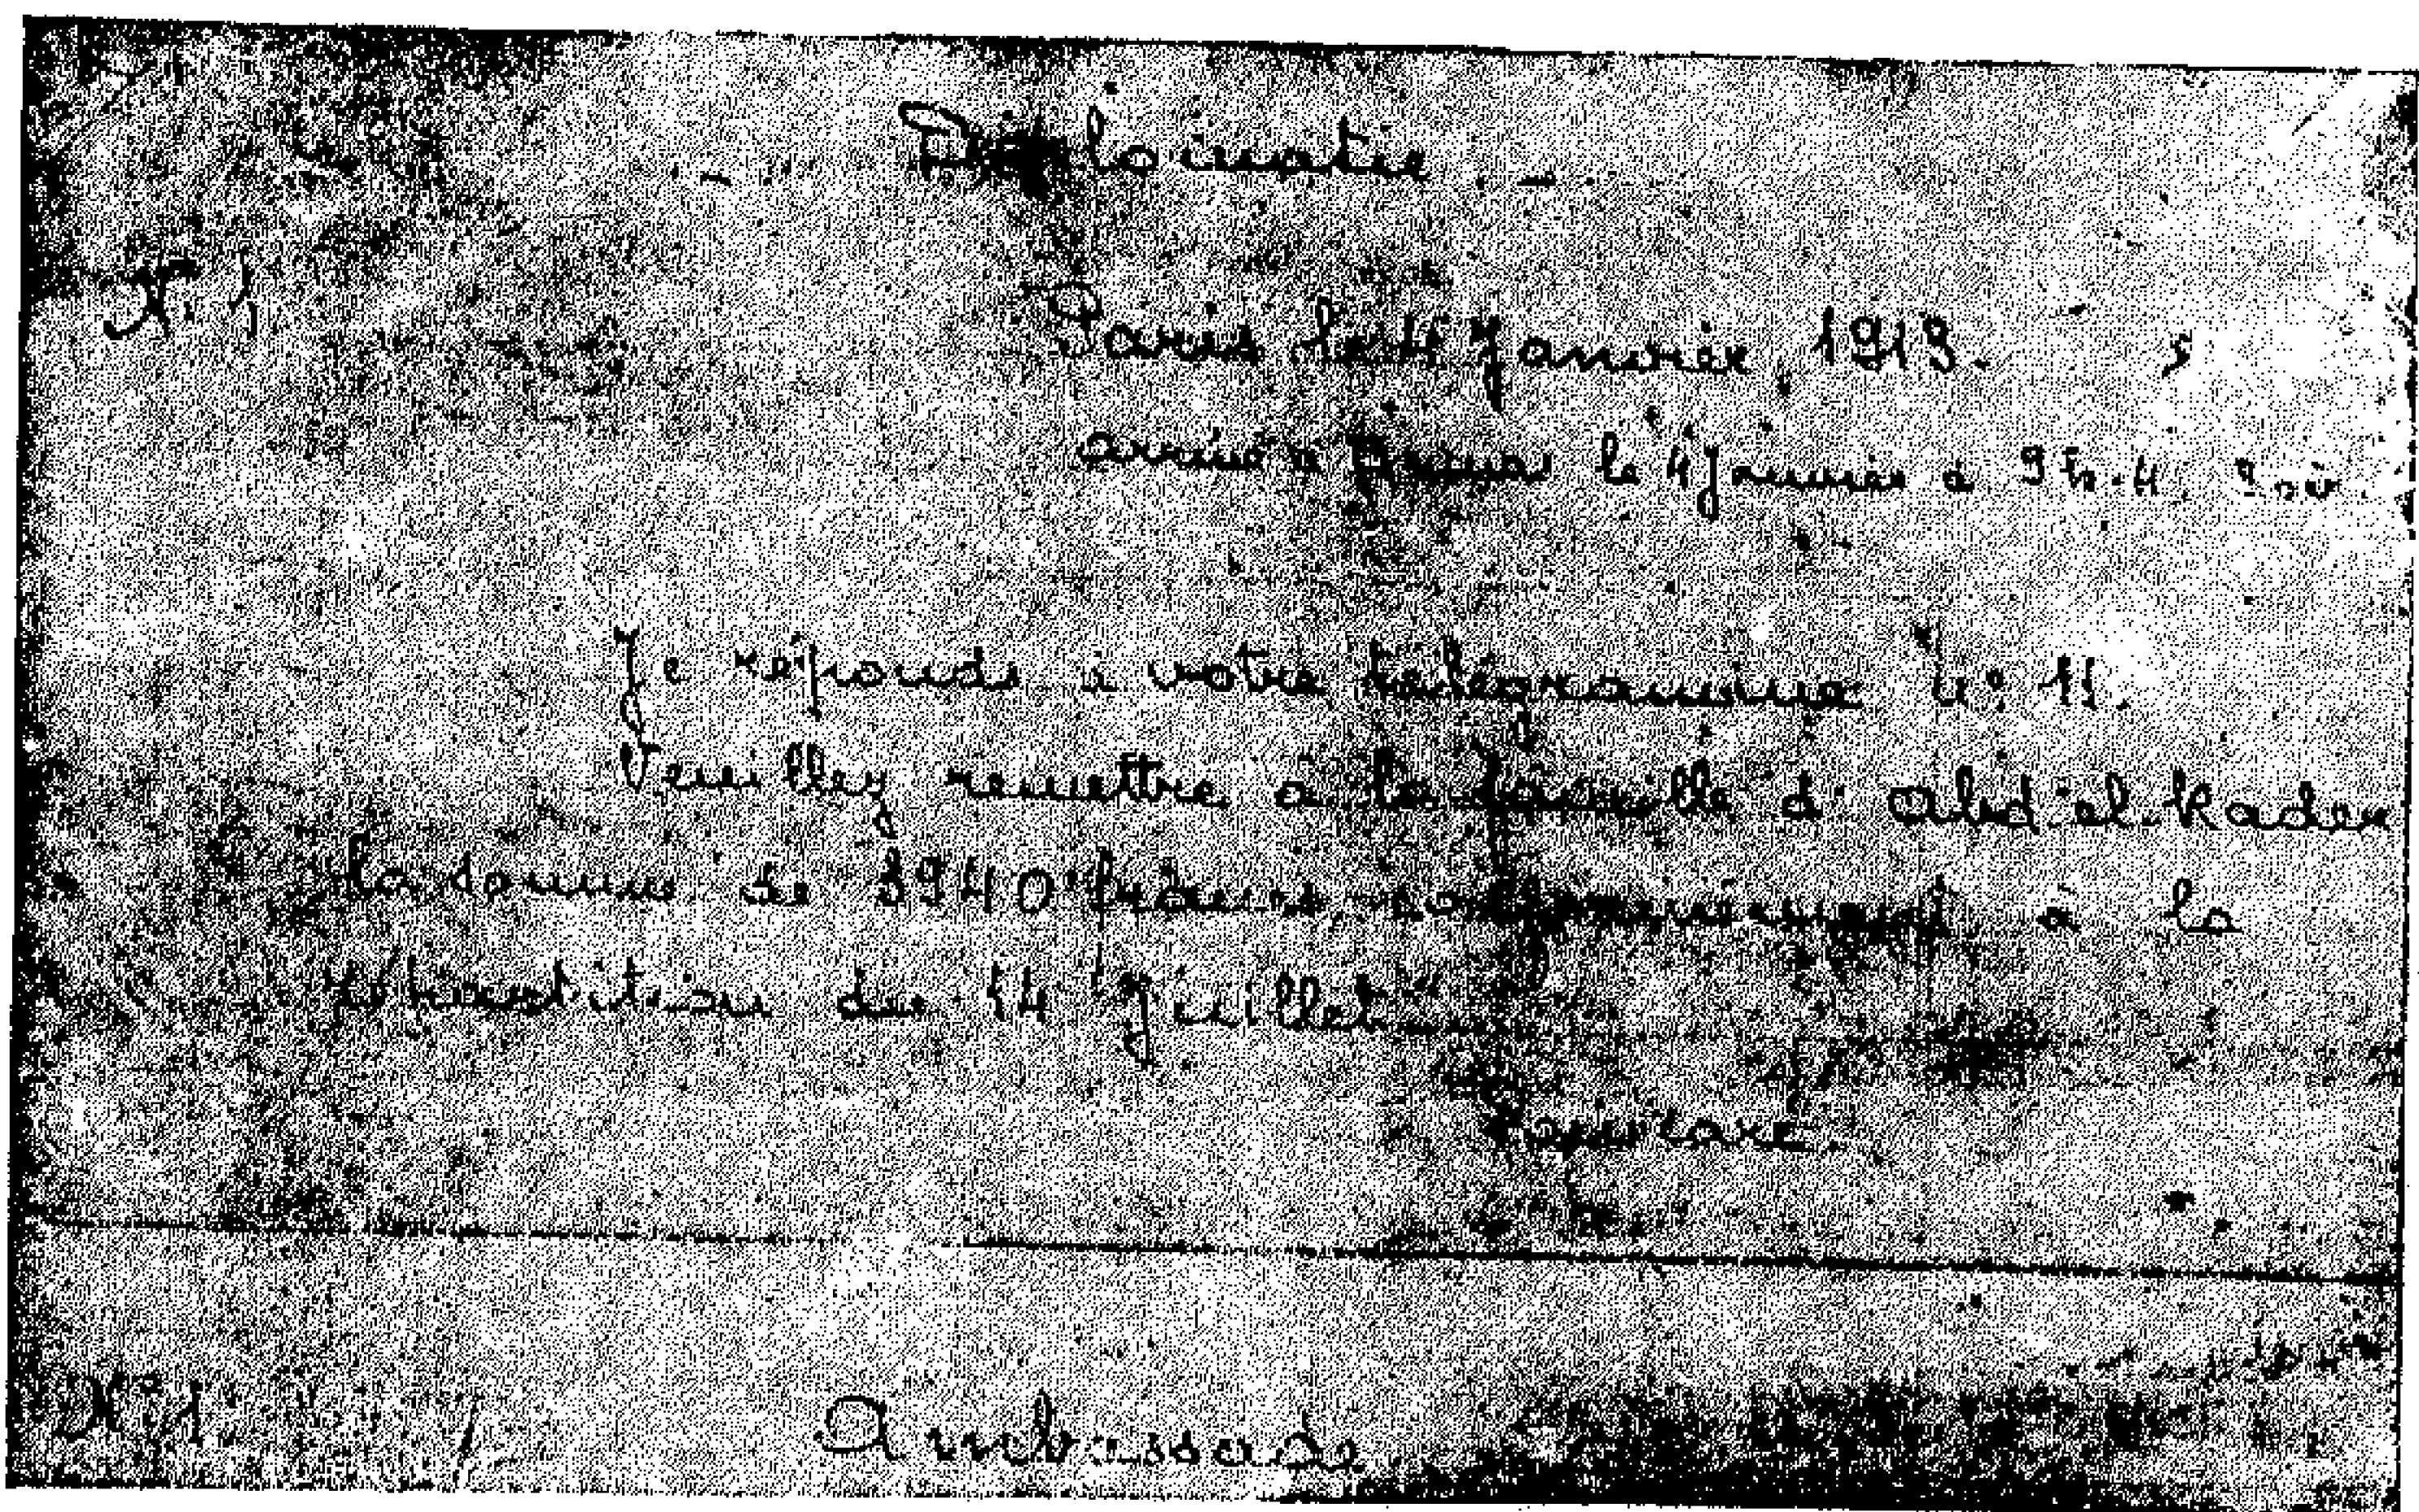 Diplomatie
N° 1
Paris le 4 Janvier 1913.
arrivé à le 4 Janvier à 9 h. 4 soir
Je réponds à votre télégramme n° 11.
Veuillez remettre à la famille d'Abd-el-Kader
la somme de 3940 francs, conformément à la
répartition du 14 Juillet
Poincaré.
N° 1
Ambassade